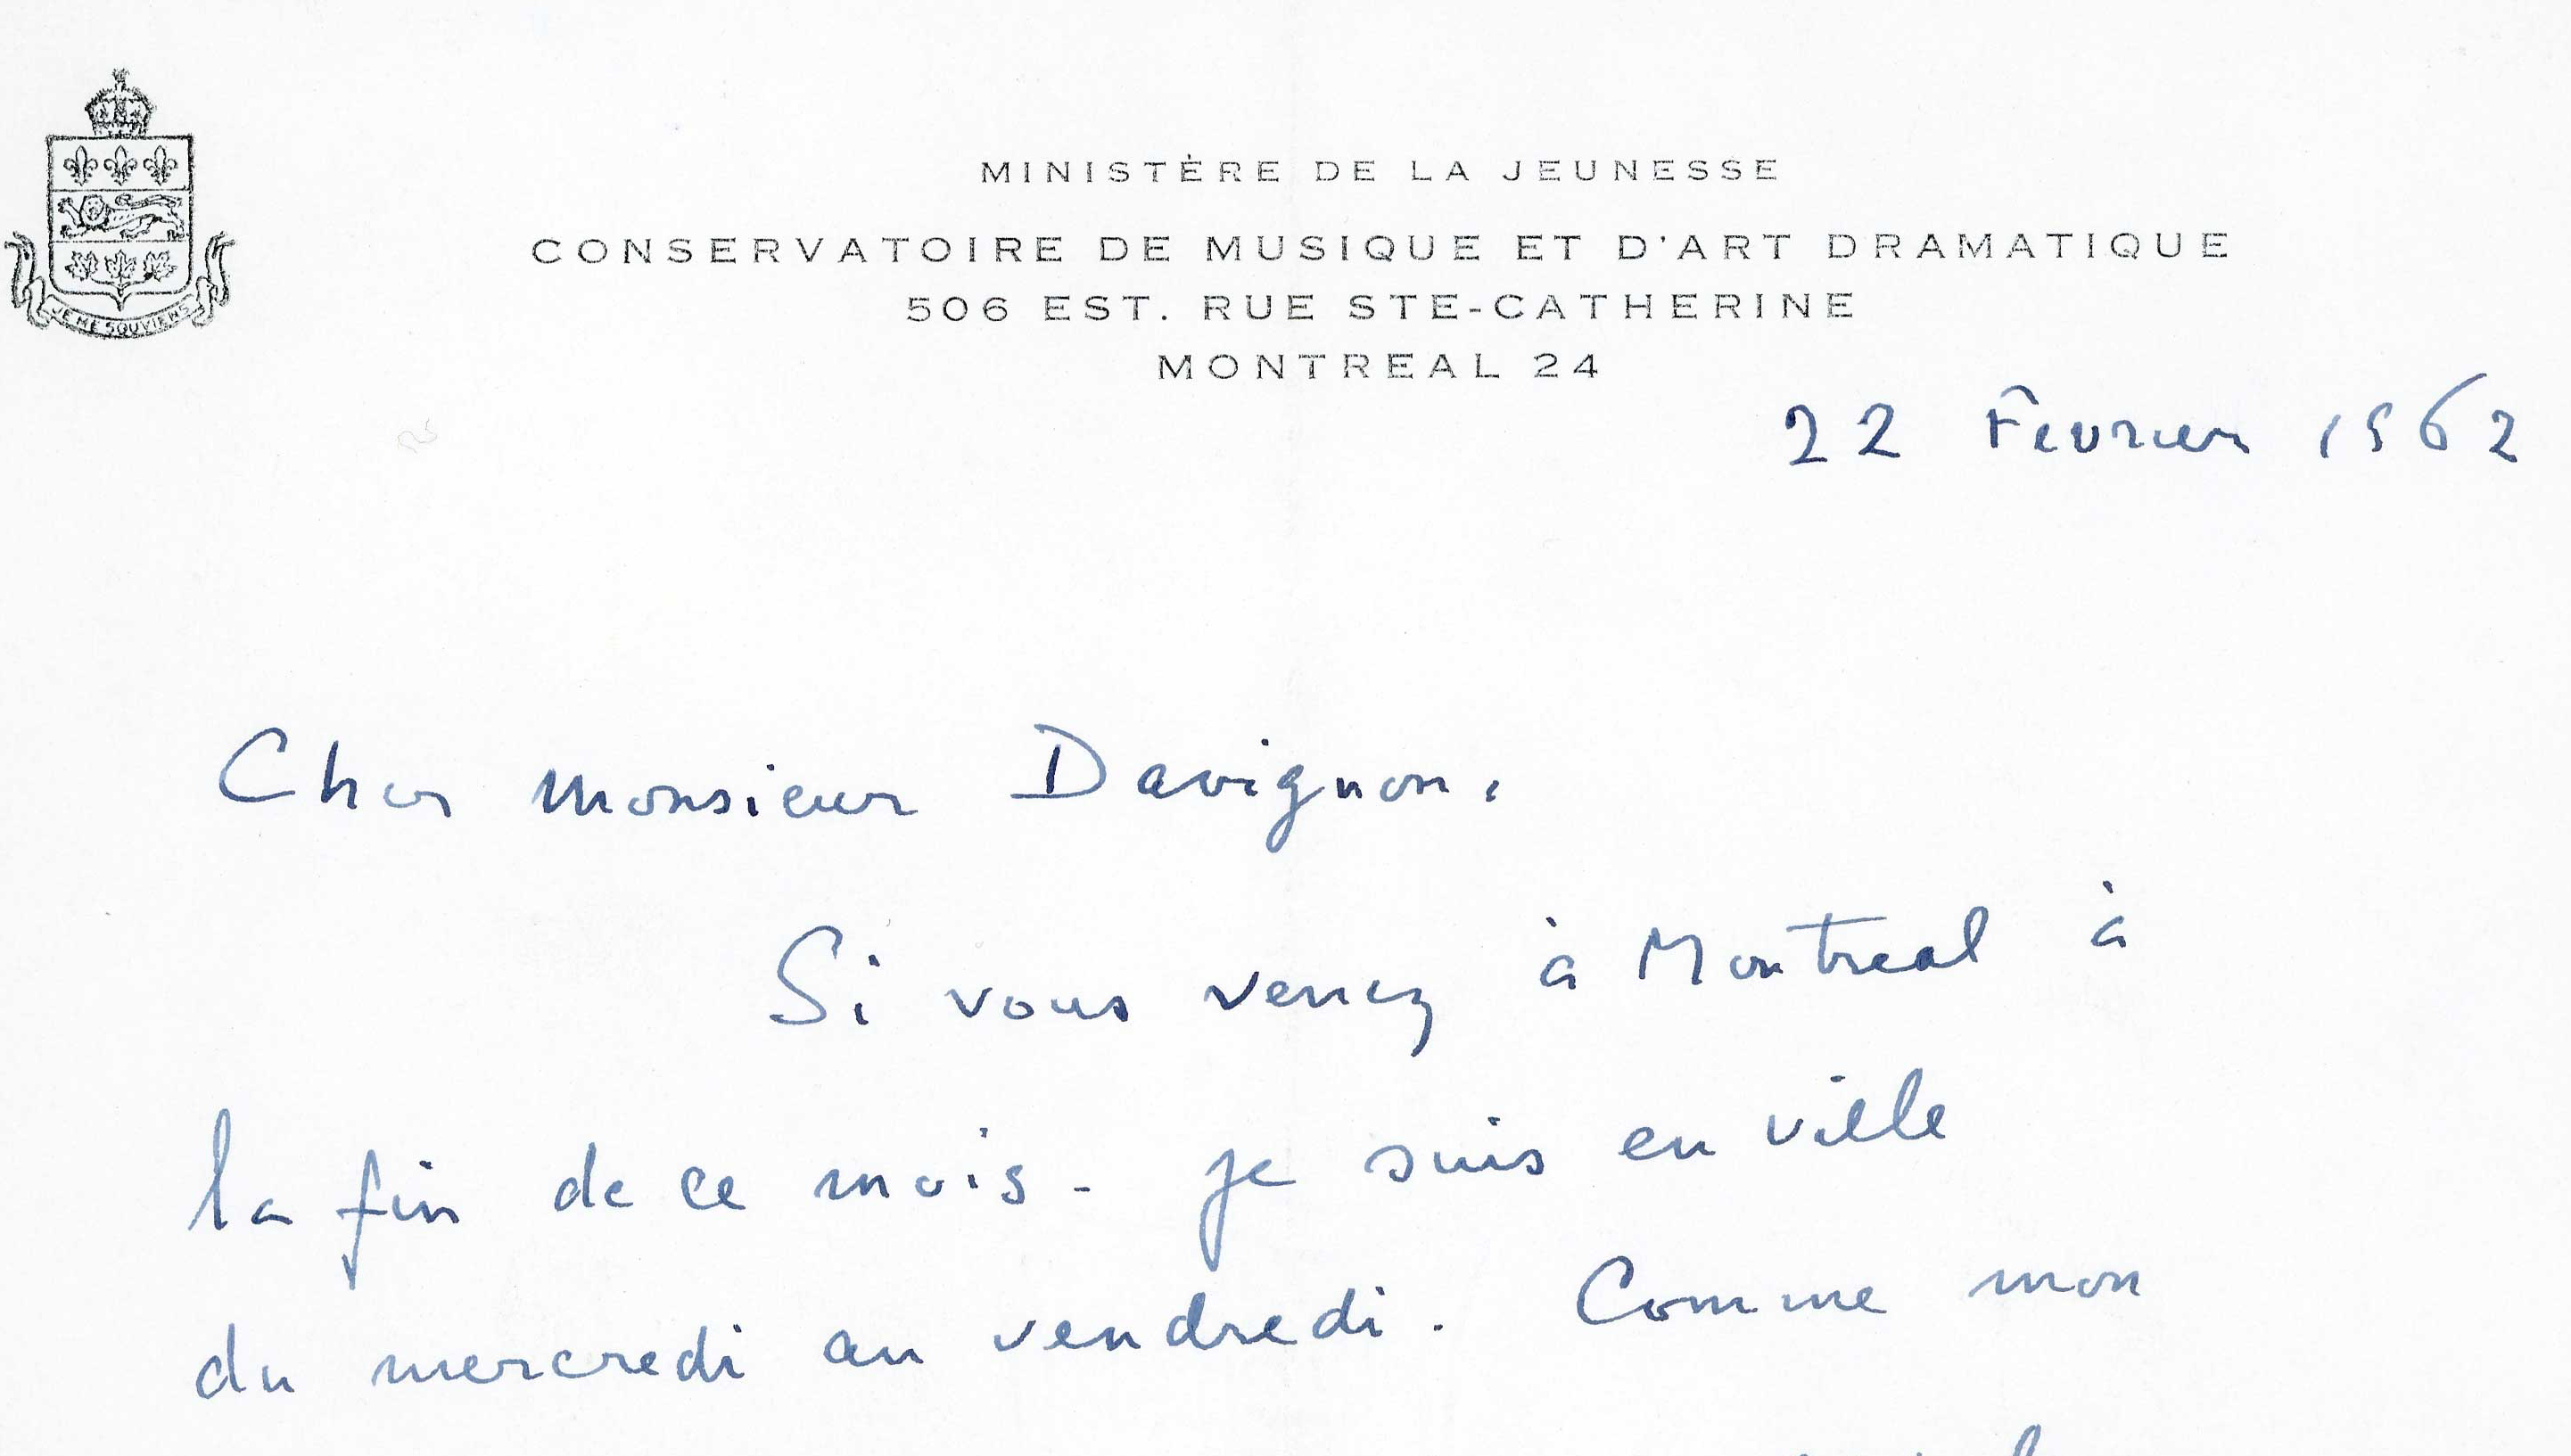 JE ME SOUVIENS
MINISTÈRE DE LA JEUNESSE
CONSERVATOIRE DE MUSIQUE ET D'ART DRAMATIQUE
506 EST. RUE STE-CATHERINE
MONTREAL 24
22 Fevrier 1962
Cher Monsieur Davignon,
Si vous venez à Montreal à
la fin de ce mois - je suis en ville
du mercredi au vendredi. Comme mon